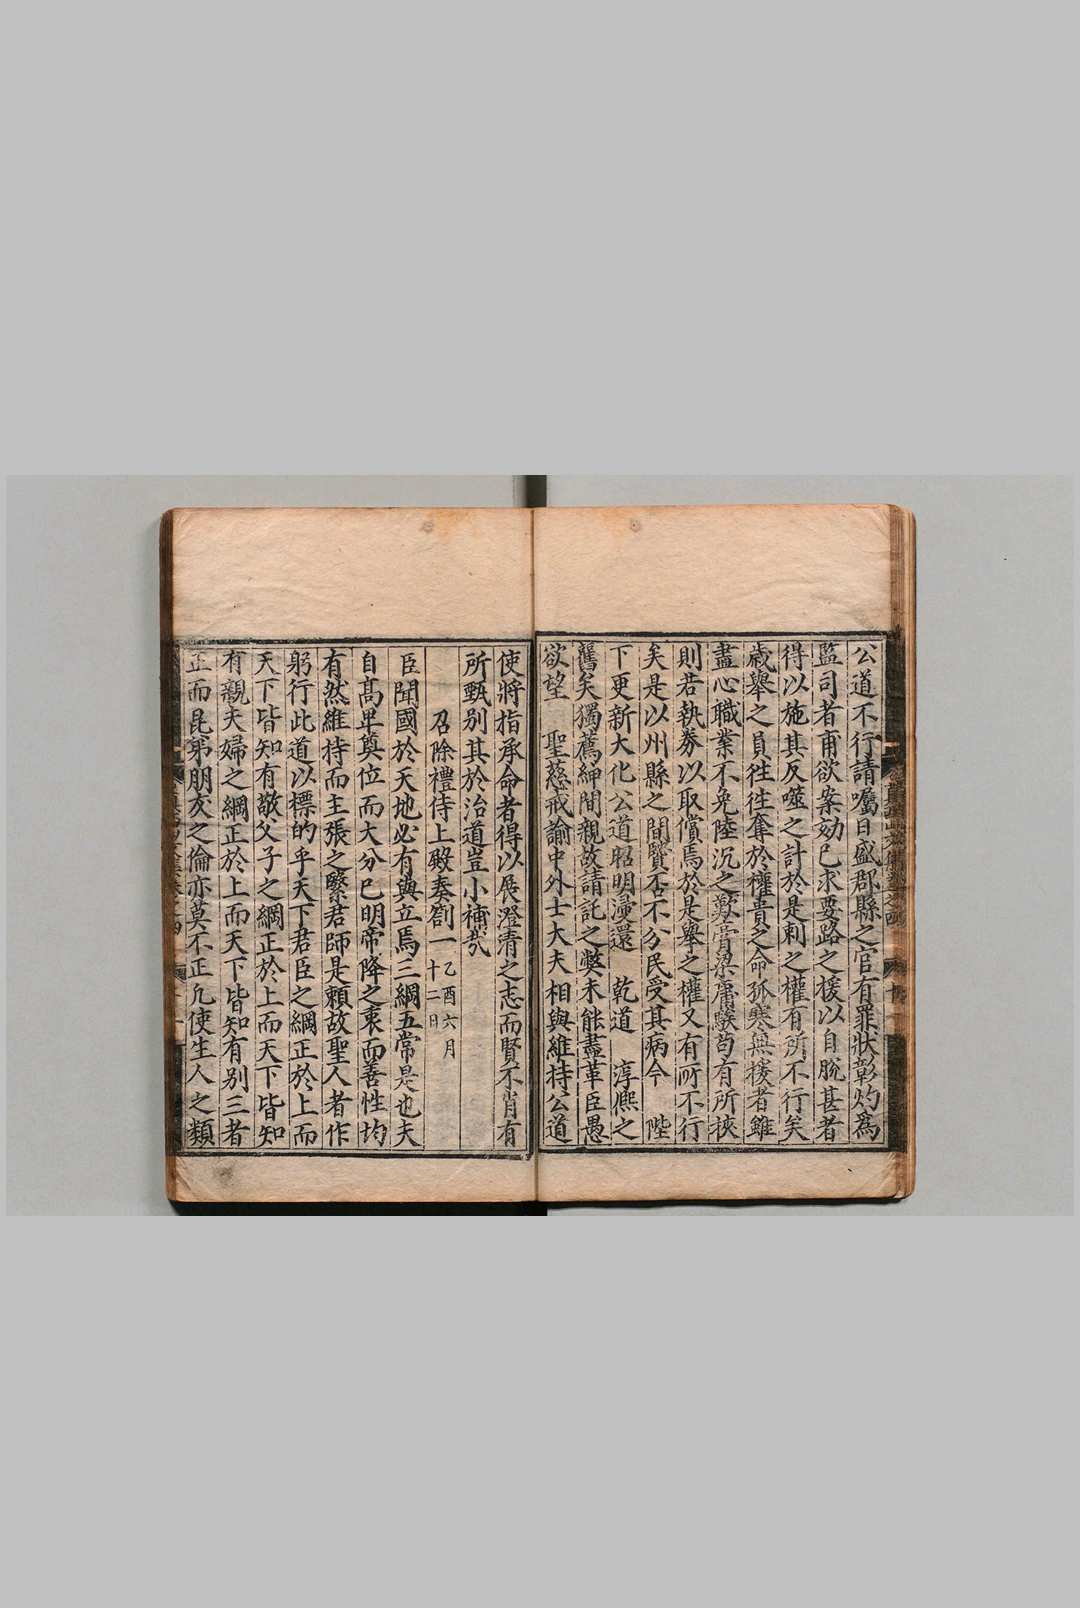 公道不行請囑日盛郡縣之官有罪狀彰灼為
監司者甫欲案劾已求要路之援以自脫甚者
得以施其反噬之計於是刺之權有所不行矣
歲舉之員往往奪於權貴之命孤寒無援者雖
盡心職業不免陸沉之歎膏粱庸騃苟有所挾
則若執券以取償焉於是舉之權又有所不行
矣是以州縣之間賢否不分民受其病今 陛
下更新大化公道昭明寖還 乾道 淳熈之
舊矣獨薦紳間親故請託之弊未能盡革臣愚
欲望 聖慈戒諭中外士大夫相與維持公道
使將指承命者得以展澄清之志而賢不肖有
所甄別其於治道豈小補哉
召除禮侍上殿奏劄一 乙酉六月
十二日
臣聞國於天地必有與立焉三綱五常是也夫
自髙卑奠位而大分已明帝降之衷而善性均
有然維持而主張之繄君師是賴故聖人者作
躬行此道以標的乎天下君臣之綱正於上而
天下皆知有敬父子之綱正於上而天下皆知
有親夫婦之綱正於上而天下皆知有别三者
正而昆弟朋友之倫亦莫不正凢使生人之類